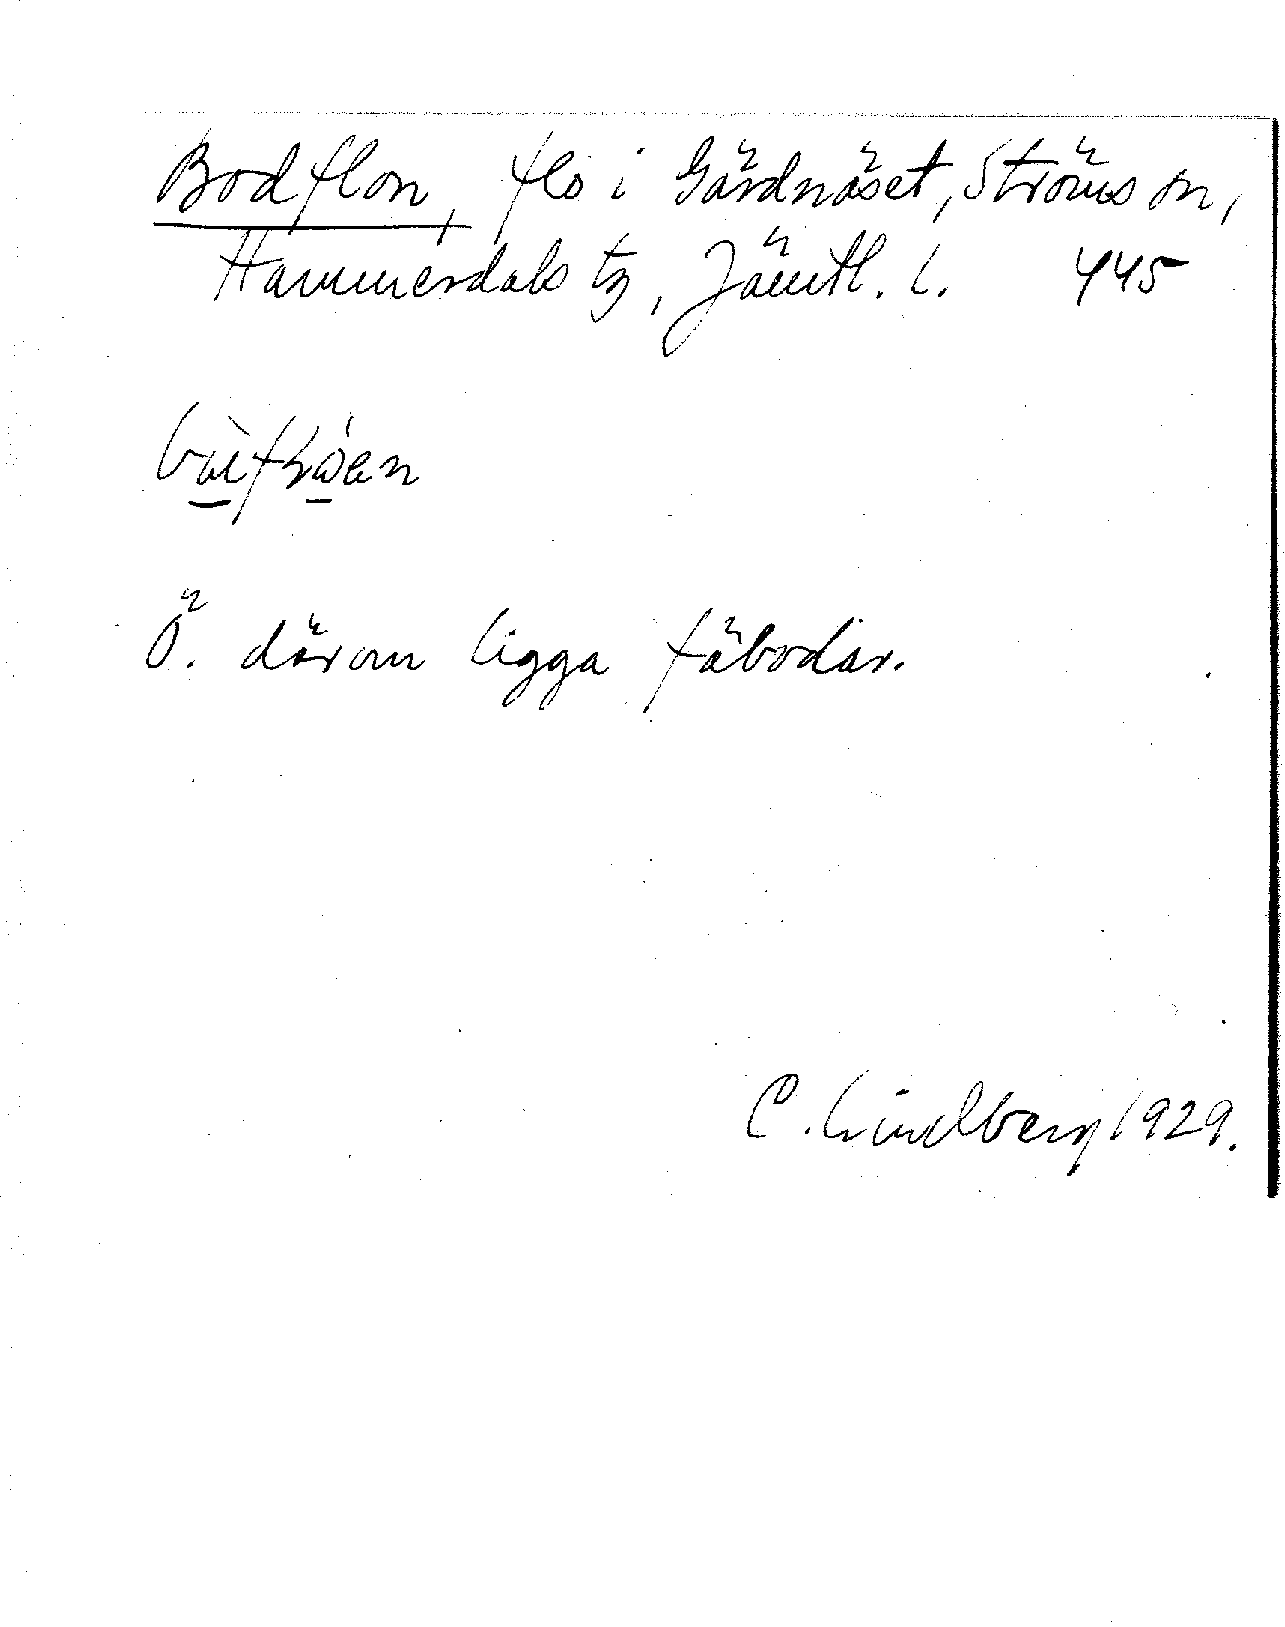 Bodflon, flo i Gärdnäset, Ströms sn,
Hammerdals tg, Jämtl. l. 445
Ö. därom ligga fäbodar.
C. Lindberg 1929.